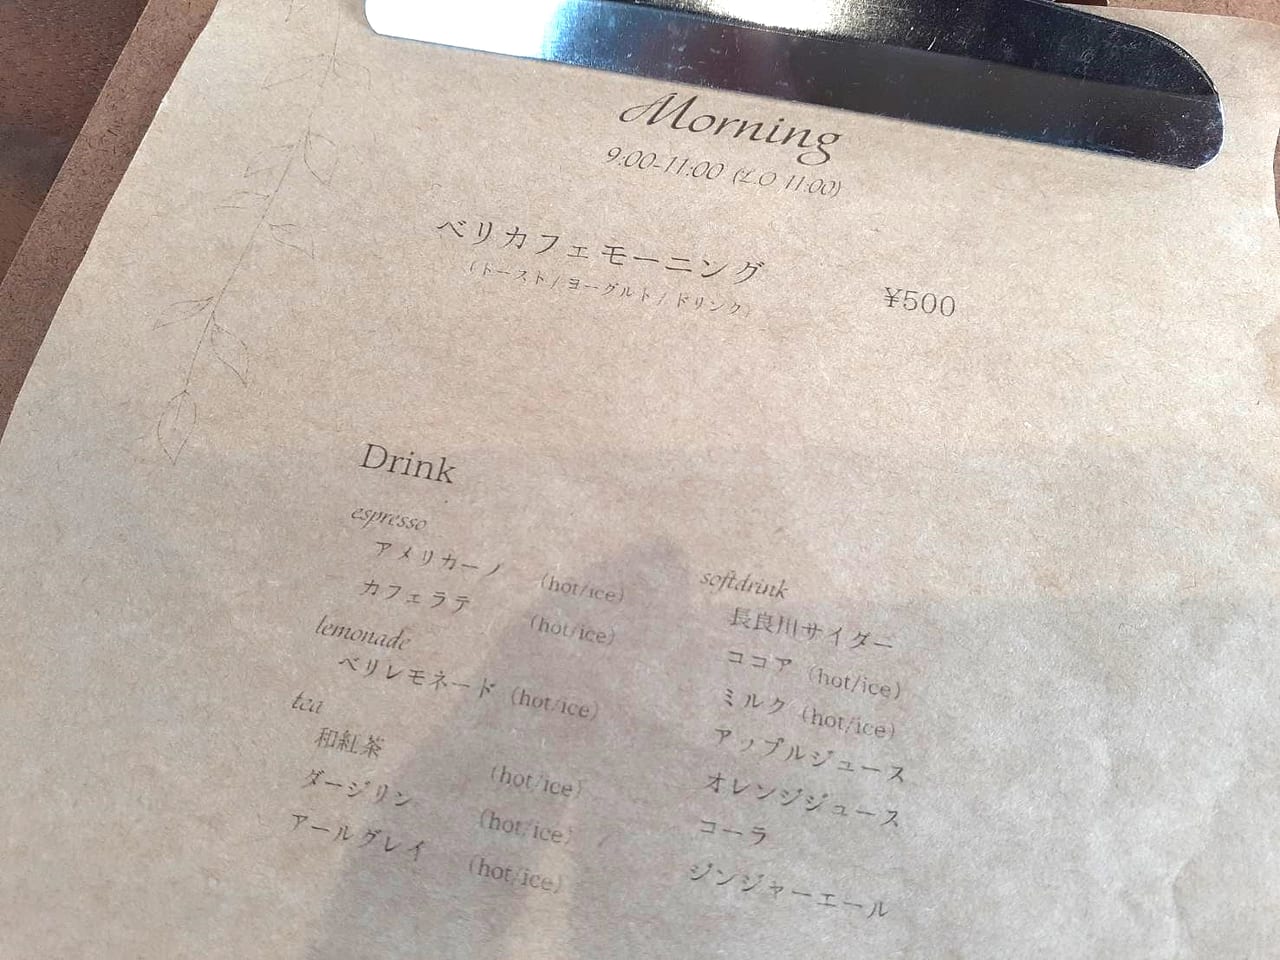 Morning
9:00-11:00 (L.O 11:00)
ベリカフェモーニング
(トースト/ヨーグルト/ドリンク)
¥500
Drink
espresso
アメリカーノ (hot/ice)
カフェラテ (hot/ice)
lemonade
ベリレモネード (hot/ice)
tea
和紅茶 (hot/ice)
ダージリン (hot/ice)
アールグレイ (hot/ice)
softdrink
長良川サイダー
ココア (hot/ice)
ミルク (hot/ice)
アップルジュース
オレンジジュース
コーラ
ジンジャーエール